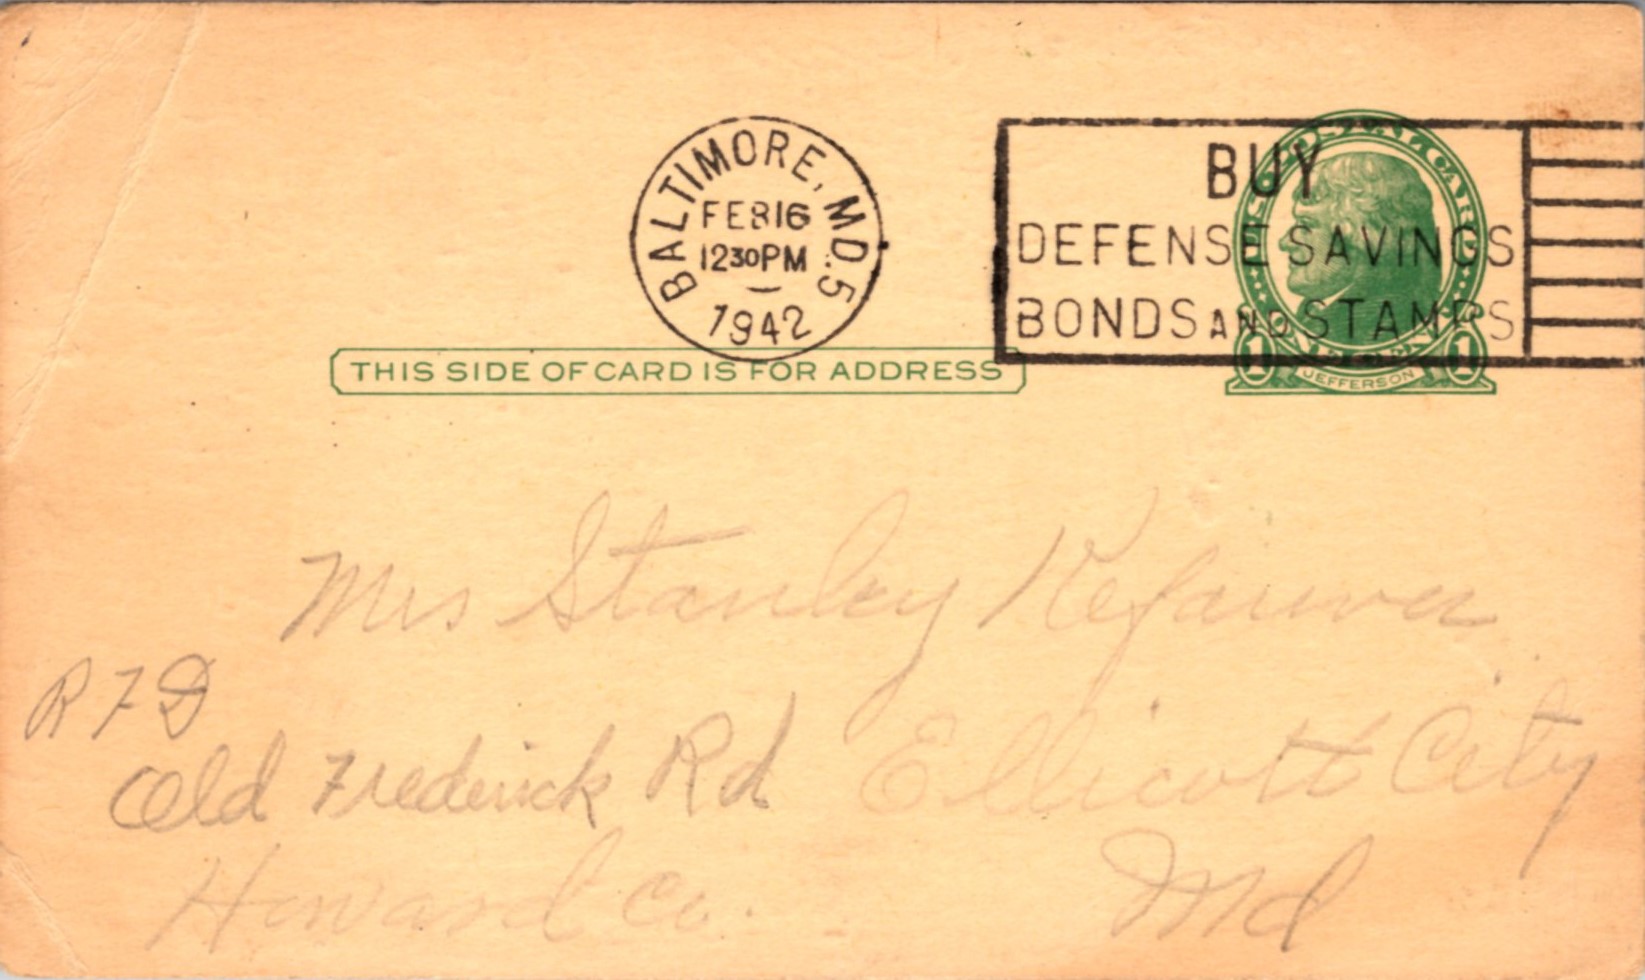 BALTIMORE, MD. 5
FEB 16
12 30 PM
1942
BUY
DEFENSE SAVINGS
BONDS AND STAMPS
U.S. POSTAL CARD
ONE CENT
1 1
JEFFERSON
THIS SIDE OF CARD IS FOR ADDRESS
Mrs Stanley Kefauver
R F D
Old Frederick Rd Ellicott City
Howard Co. Md